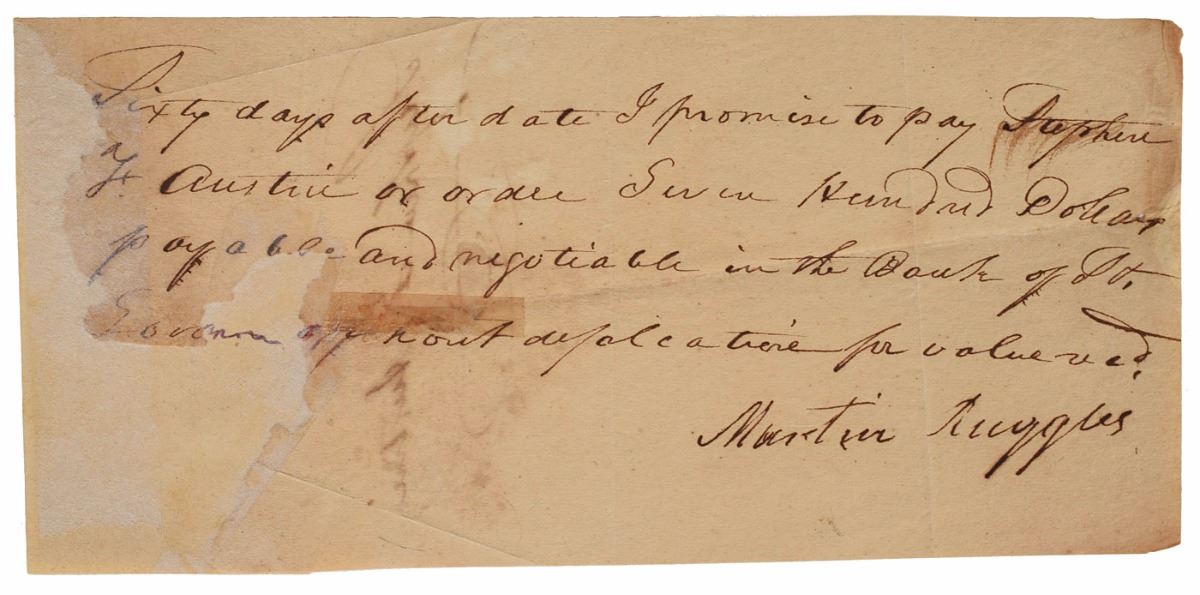 Sixty days after date I promise to pay Stephen
F. Austin or order Seven Hundred Dollars
payable and negotiable in the Bank of St.
without defalcation for value recd.
Martin Ruggles